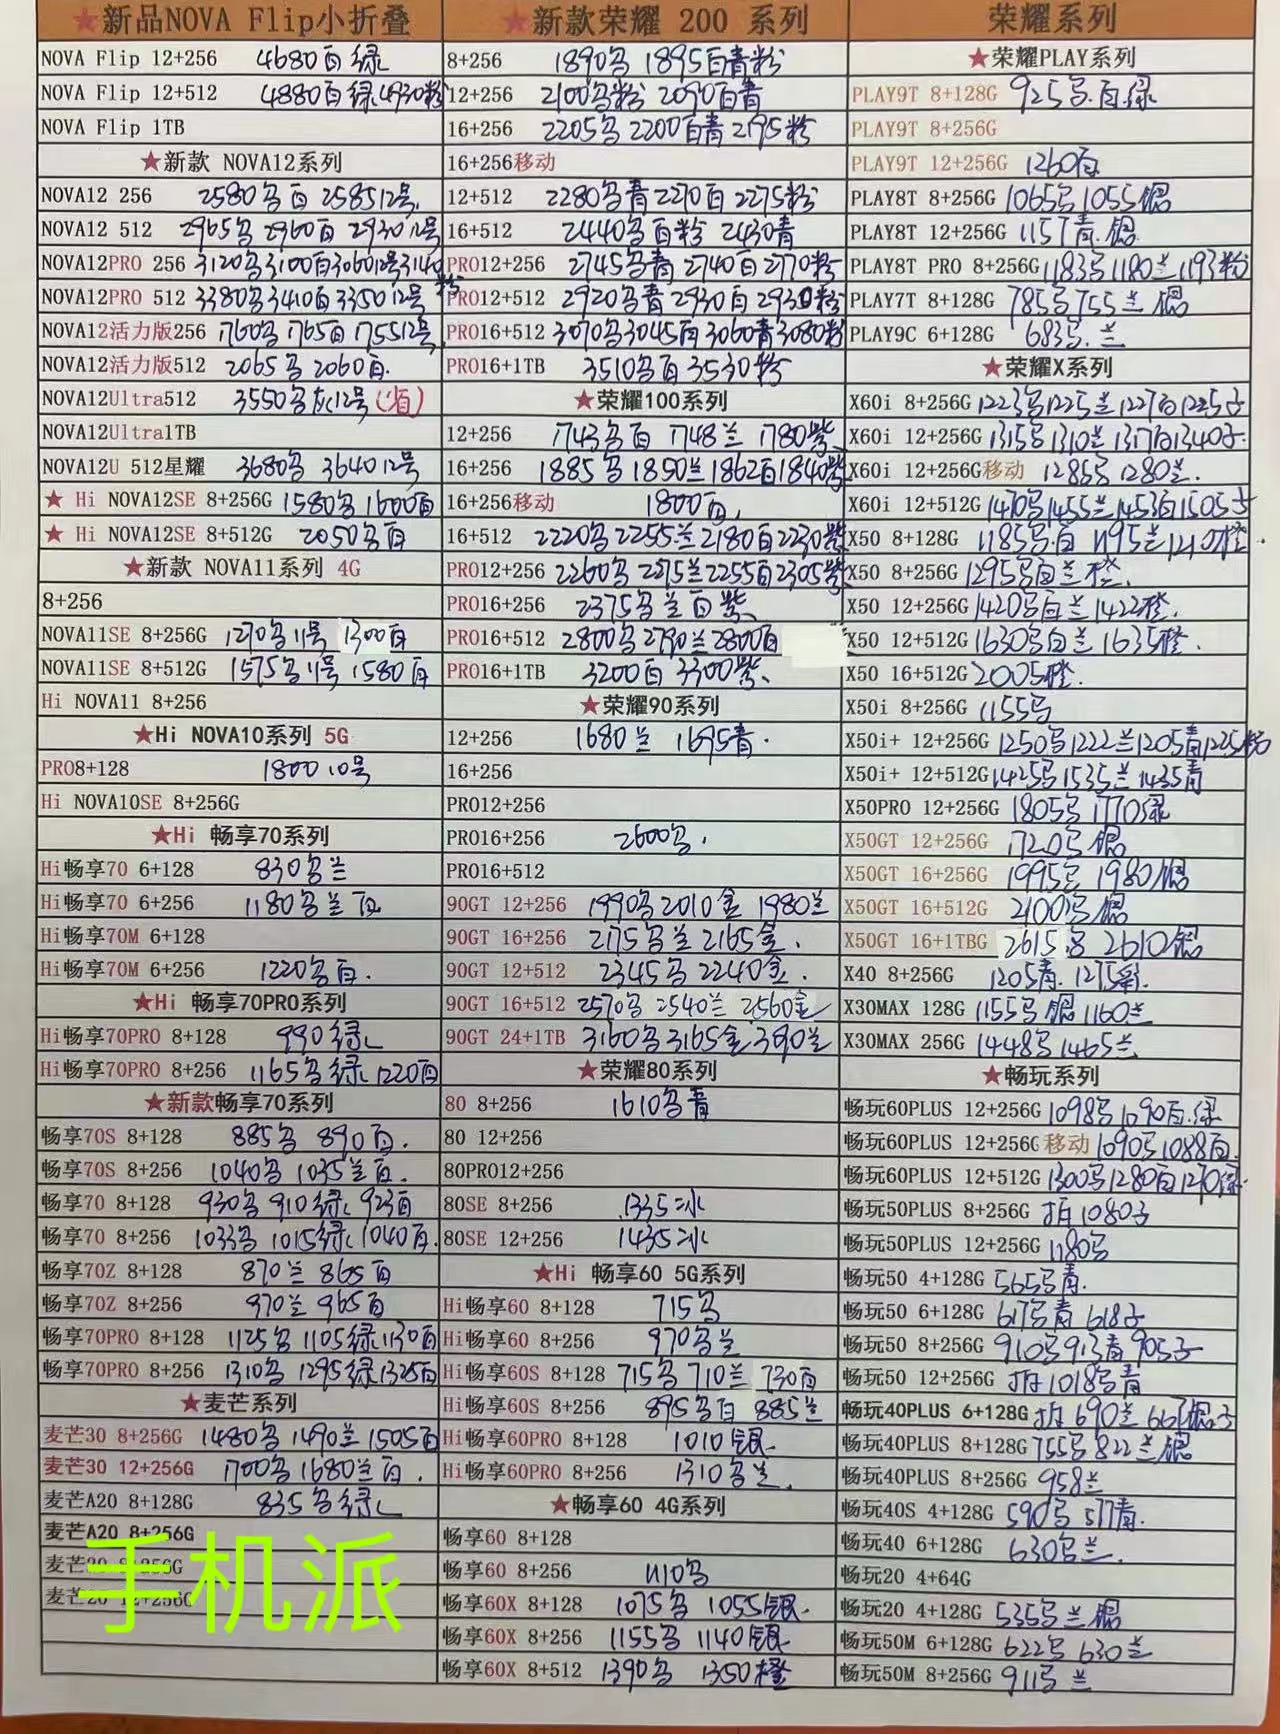 ★新品NOVA Flip小折叠
NOVA Flip 12+256 4680百绿
NOVA Flip 12+512 4880百绿4930粉
NOVA Flip 1TB
★新款 NOVA12系列
NOVA12 256 2580乌百 258512号
NOVA12 512 2965乌 2960百 293012号
NOVA12PRO 256 3120乌3100百306012号3140粉
NOVA12PRO 512 3380乌3410百335012号
NOVA12活力版256 1760乌1765百175512号
NOVA12活力版512 2065乌2060百.
NOVA12Ultra512 3550乌灰12号(省)
NOVA12Ultra1TB
NOVA12U 512星耀 3680乌 364012号
★ Hi NOVA12SE 8+256G 1580乌1600百
★ Hi NOVA12SE 8+512G 2050乌百
★新款 NOVA11系列 4G
8+256
NOVA11SE 8+256G 1270乌11号 1300百
NOVA11SE 8+512G 1575乌11号 1580百
Hi NOVA11 8+256
★Hi NOVA10系列 5G
PRO8+128 1800 10号
Hi NOVA10SE 8+256G
★Hi 畅享70系列
Hi畅享70 6+128 830乌兰
Hi畅享70 6+256 1180乌兰百
Hi畅享70M 6+128
Hi畅享70M 6+256 1220乌百.
★Hi 畅享70PRO系列
Hi畅享70PRO 8+128 990绿
Hi畅享70PRO 8+256 1165乌绿1220百
★新款畅享70系列
畅享70S 8+128 885乌 890百.
畅享70S 8+256 1040乌 1035兰百.
畅享70 8+128 930乌910绿923百
畅享70 8+256 1033乌1015绿1040百.
畅享70Z 8+128 870兰 865百
畅享70Z 8+256 970兰 965百
畅享70PRO 8+128 1125乌1105绿1130百
畅享70PRO 8+256 1310乌1295绿1325百
★麦芒系列
麦芒30 8+256G 1480乌1490兰1505百
麦芒30 12+256G 1700乌1680兰百.
麦芒A20 8+128G 835乌绿
麦芒A20 8+256G
麦芒20 8+256G
麦芒20 12+256G
手机派
★新款荣耀 200 系列
8+256 1890乌 1895百青粉
12+256 2100乌粉 2090百青
16+256 2205乌2200百青2195粉
16+256移动
12+512 2280乌青2270百2275粉
16+512 2440乌百粉 2430青
PRO12+256 2745乌青2740百2770粉
PRO12+512 2920乌青2930百2930粉
PRO16+512 3070乌3045百3060青3080粉
PRO16+1TB 3510乌百3530粉
★荣耀100系列
12+256 1743乌百 1748兰 1780紫
16+256 1885乌1850兰1862百1840紫
16+256移动 1800百.
16+512 2220乌2255兰2180百2230紫
PRO12+256 2260乌2275兰2255百2305紫
PRO16+256 2375乌兰百紫
PRO16+512 2800乌2790兰2800百
PRO16+1TB 3200百3300紫.
★荣耀90系列
12+256 1680兰 1695青.
16+256
PRO12+256
PRO16+256 2600乌.
PRO16+512
90GT 12+256 1990乌2010金 1980兰
90GT 16+256 2175乌兰2165金.
90GT 12+512 2345乌2240金.
90GT 16+512 2570乌2540兰2560金
90GT 24+1TB 3160乌3165金3090兰
★荣耀80系列
80 8+256 1610乌青
80 12+256
80PRO12+256
80SE 8+256 1335冰
80SE 12+256 1435冰
★Hi 畅享60 5G系列
Hi畅享60 8+128 715乌
Hi畅享60 8+256 970乌兰
Hi畅享60S 8+128 715乌710兰 730百
Hi畅享60S 8+256 895乌白885兰
Hi畅享60PRO 8+128 1010银.
Hi畅享60PRO 8+256 1310乌兰.
★畅享60 4G系列
畅享60 8+128
畅享60 8+256 1110乌
畅享60X 8+128 1075乌 1055银.
畅享60X 8+256 1155乌 1140银
畅享60X 8+512 1390乌 1350橙
荣耀系列
★荣耀PLAY系列
PLAY9T 8+128G 925乌.百.绿
PLAY9T 8+256G
PLAY9T 12+256G 1260百
PLAY8T 8+256G 1065乌1055银
PLAY8T 12+256G 1157青.银
PLAY8T PRO 8+256G 1183乌1180兰1193粉
PLAY7T 8+128G 785乌755兰银
PLAY9C 6+128G 683乌.兰
★荣耀X系列
X60i 8+256G 1223乌1225兰1227百1225子
X60i 12+256G 1315乌1310兰1317百1340子.
X60i 12+256G移动 1285乌1280兰.
X60i 12+512G 1470乌1455兰1453百1505子
X50 8+128G 1185乌.百 1195兰1210橙.
X50 8+256G 1295乌百兰橙.
X50 12+256G 1420乌百兰1422橙.
X50 12+512G 1630乌百兰 1635橙.
X50 16+512G 2005橙.
X50i 8+256G 1155乌
X50i+ 12+256G 1250乌1222兰1205青1225粉
X50i+ 12+512G 1425乌1535兰1435青
X50PRO 12+256G 1805乌1770绿
X50GT 12+256G 1720乌银
X50GT 16+256G 1995乌 1980银
X50GT 16+512G 2100乌银
X50GT 16+1TBG 2615乌 2610银
X40 8+256G 1205青.1275彩.
X30MAX 128G 1155乌银1160兰
X30MAX 256G 1448乌1465兰
★畅玩系列
畅玩60PLUS 12+256G 1098乌1090百.绿
畅玩60PLUS 12+256G移动 1090乌1088百.
畅玩60PLUS 12+512G 1300乌1280百1270绿.
畅玩50PLUS 8+256G 拆1080子
畅玩50PLUS 12+256G 1180乌
畅玩50 4+128G 565乌青.
畅玩50 6+128G 617乌青 618子
畅玩50 8+256G 910乌913青905子
畅玩50 12+256G 拆1018乌青
畅玩40PLUS 6+128G 拆690兰667银子
畅玩40PLUS 8+128G 755乌822兰银
畅玩40PLUS 8+256G 958兰
畅玩40S 4+128G 590乌577青.
畅玩40 6+128G 630乌兰.
畅玩20 4+64G
畅玩20 4+128G 535乌兰银
畅玩50M 6+128G 622乌 630兰
畅玩50M 8+256G 911乌 兰